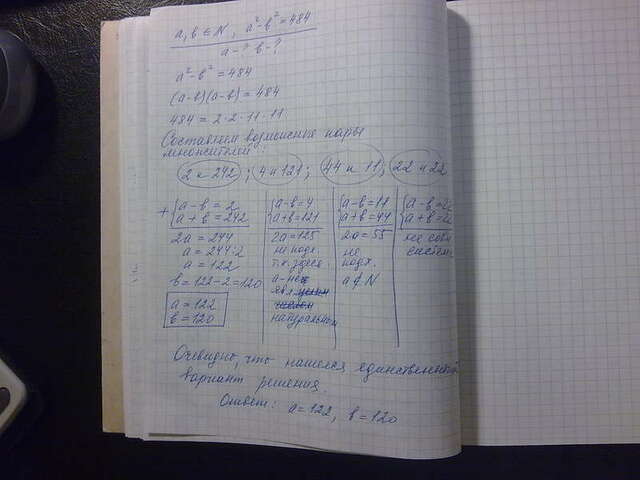 a, b ∈ N, a² - b² = 484
a - ? b - ?
a² - b² = 484
(a-b)(a-b) = 484
484 = 2·2·11·11
Составляем возможные пары
множителей:
2 и 242; 4 и 121; 44 и 11; 22 и 22
+ { a - b = 2
a + b = 242
2a = 244
a = 244:2
a = 122
b = 122-2=120
a = 122
b = 120
{ a-b=4
a+b=121
2a = 125
не подх.
т.к. здесь
a - не
явл.
натуральным
{ a-b=11
a+b=44
2a = 55
не
подх.
a ∉ N
{ a-b=22
a+b=22
не совм
систем
Очевидно, что нашелся единственный
вариант решения.
Ответ: a=122, b=120